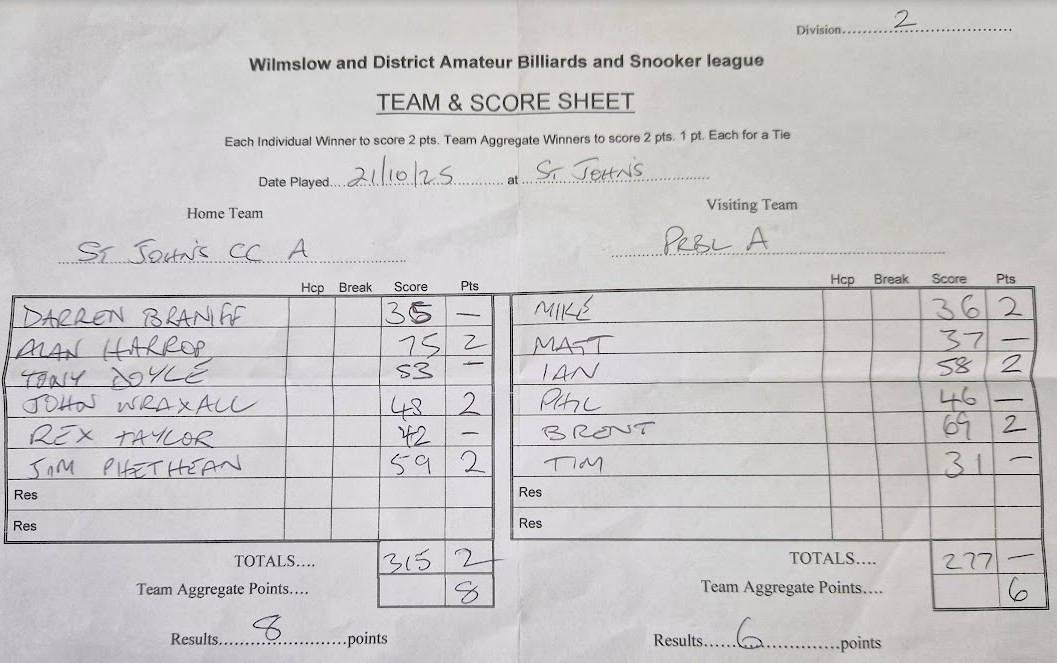 Division 2
Wilmslow and District Amateur Billiards and Snooker league
TEAM & SCORE SHEET
Each Individual Winner to score 2 pts. Team Aggregate Winners to score 2 pts. 1 pt. Each for a Tie
Date Played.... 21/10/25 at ST JOHN'S
Home Team Visiting Team
ST JOHN'S CC A PRBL A
Hcp Break Score Pts Hcp Break Score Pts
DARREN BRANIFF 35 – MIKE 36 2
ALAN HARROP 75 2 MATT 37 –
TONY DOYLE 53 – IAN 58 2
JOHN WRAXALL 48 2 PHIL 46 –
REX TAYLOR 42 – BRENT 69 2
JIM PHETHEAN 59 2 TIM 31 –
Res Res
Res Res
TOTALS.... 315 2 TOTALS.... 277 –
Team Aggregate Points.... 8 Team Aggregate Points.... 6
Results 8 points Results 6 points